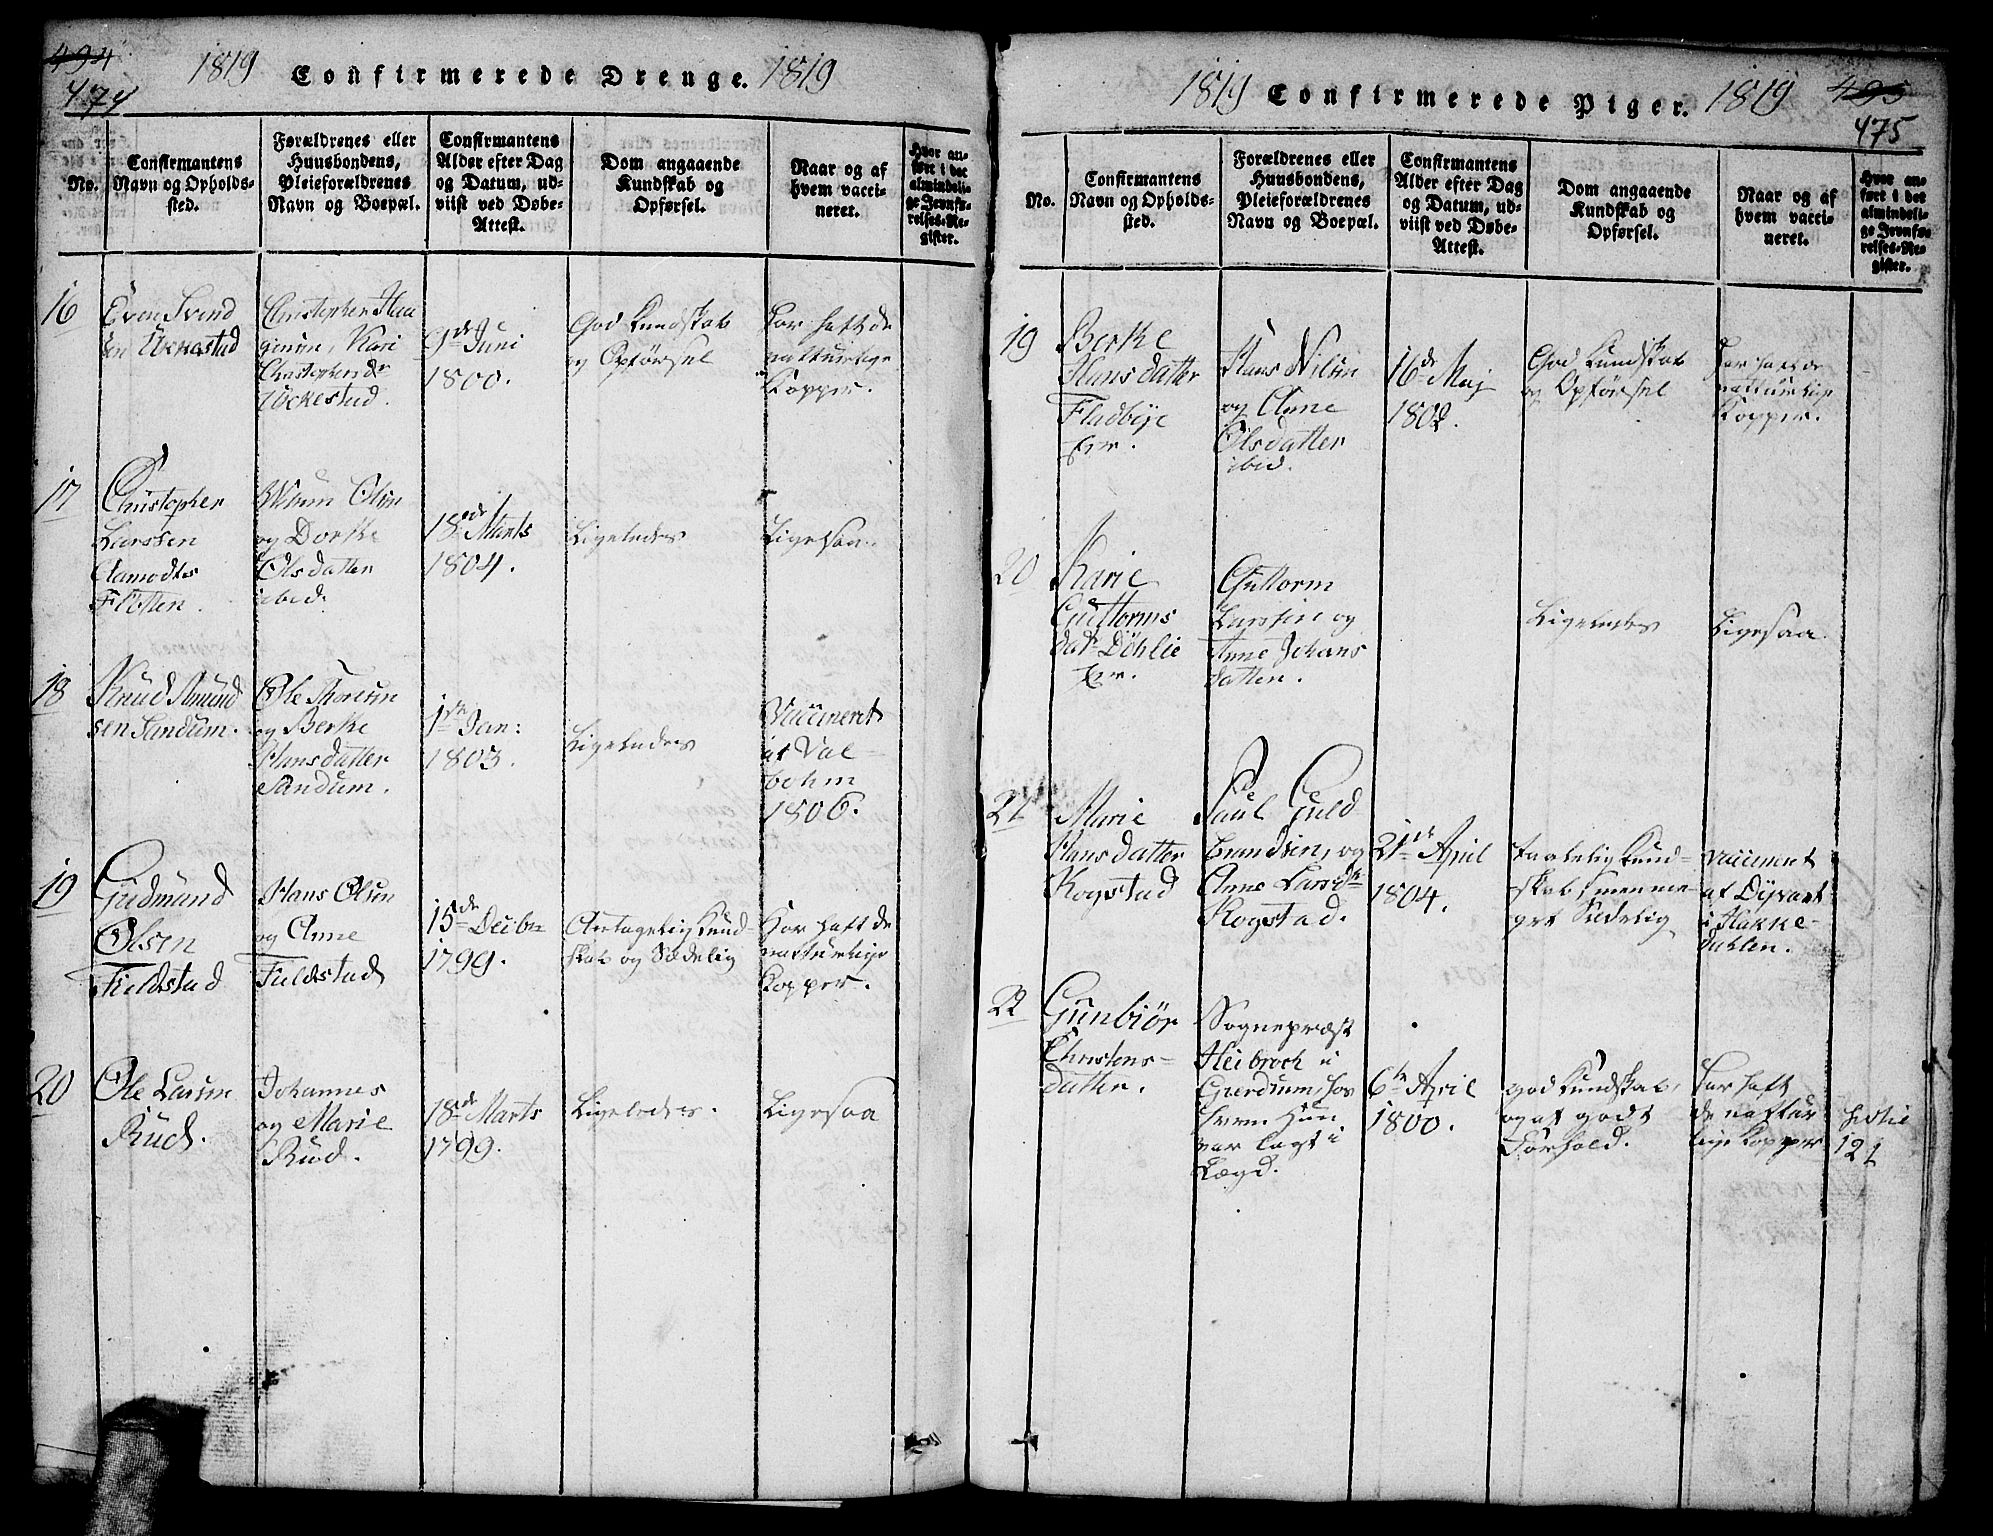 494
474
1819 Confirmerede Drenge. 1819
No.
Confirmantens
Navn og Opholds-
sted.
Forældrenes eller
Huusbondens,
Pleieforældrenes
Navn og Boepæl.
Confirmantens
Alder efter Dag
og Datum, ud-
viist ved Døbe-
Attest.
Dom angaaende
Kundskab og
Opførsel.
Naar og af
hvem vacci-
neret.
Hvor an-
ført i det
almindeli-
ge Jevnfø-
relses-Re-
gister.
16
Even Svend
sen Uckestad
Christopher Haa
gensen, Kari
Christophersdr
Uckestad.
9de Juni
1800.
God Kundskab
og Opførsel
Har haft de
natturlige
Kopper.
17
Christopher
Larssen
Aamodts
Flotten.
Olsen
og Dorthe
Olsdatter
ibid.
18de Marts
1804.
Ligeledes
Ligesaa.
18
Knud Amund
sen Sandum.
Ole Thorsen
og Berthe
Hansdatter
Sandum.
1ste Jan:
1803.
Ligeledes
Vaccineret
af Val-
bohm
1806.
19
Gudmund
Olsen
Fieldstad
Hans Olsen
og Anne
Fieldstad
15de Decbr
1799.
Antagelig Kund-
skab og Sædelig
Har haft de
natturlige
Kopper.
20
Ole Larsen
Rud.
Johannes
og Marie
Rud.
18de Marts
1799.
Ligeledes.
Ligesaa
1819 Confirmerede Piger. 1819
495
475
No.
Confirmantens
Navn og Opholds-
sted.
Forældrenes eller
Huusbondens,
Pleieforældrenes
Navn og Boepæl.
Confirmantens
Alder efter Dag
og Datum, ud-
viist ved Døbe-
Attest.
Dom angaaende
Kundskab og
Opførsel.
Naar og af
hvem vacci-
neret.
Hvor an-
ført i det
almindeli-
ge Jevnfø-
relses-Re-
gister.
19
Berthe
Hansdatter
Fladbye
Eie.
Hans Nilsen
og Anne
Olsdatter
ibid.
16de Maj
1802.
God Kundskab
og Opførsel
Har haft de
natturlige
Kopper.
20
Karie
Guttorms
dat. Döhlie
Eie.
Guttorm
Larssen og
Anne Johans
datter.
Ligeledes
Ligesaa.
21
Marie
Hansdatter
Kogstad
Paul Guld
brandsen, og
Anne Larsdtr
Kogstad.
21de April
1804.
taalelig Kund-
skab, men me-
get Sædelig
vaccineret
af Dyvart
i Hakke-
dahlen.
22
Gunbiör
Christens-
datter.
Sognepræst
Heibroch i
Gjerdrum hos
hvem hun
var lagt i
Lægd.
6te April
1800.
god Kundskab,
og af godt
Forhold.
har haft
de nattur
lige Kopper
121